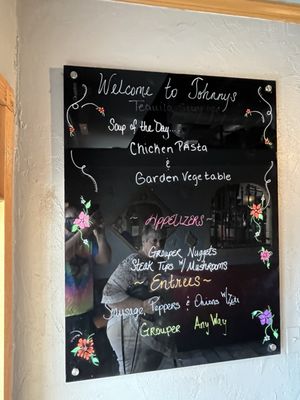 Welcome to Johnnys
Tequila Sunrise
Soup of the Day...
Chicken Pasta
&
Garden Vegetable
~ Appetizers ~
Grouper Nuggets
Steak Tips w/ Mushrooms
~ Entrees ~
Sausage, Peppers & Onions w/ Ziti
Grouper Any Way